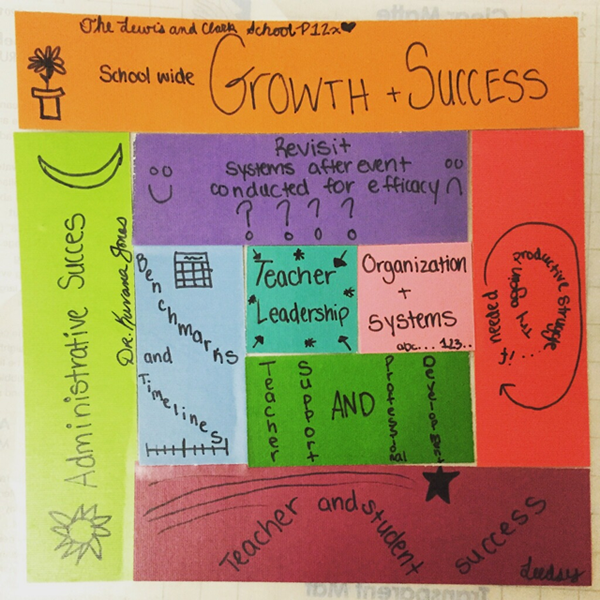 The Lewis and Clark School-P12x
School wide GROWTH + SUCCESS
Revisit
systems after event
conducted for efficacy
? ? ? ?
Administrative Succes
Benchmarks
and
Timelines
Teacher
Leadership
Organization
+
systems
abc.... 123..
productive struggle
try again
....if
needed
Teacher
Support
AND
Professional
Development
Teacher and student success